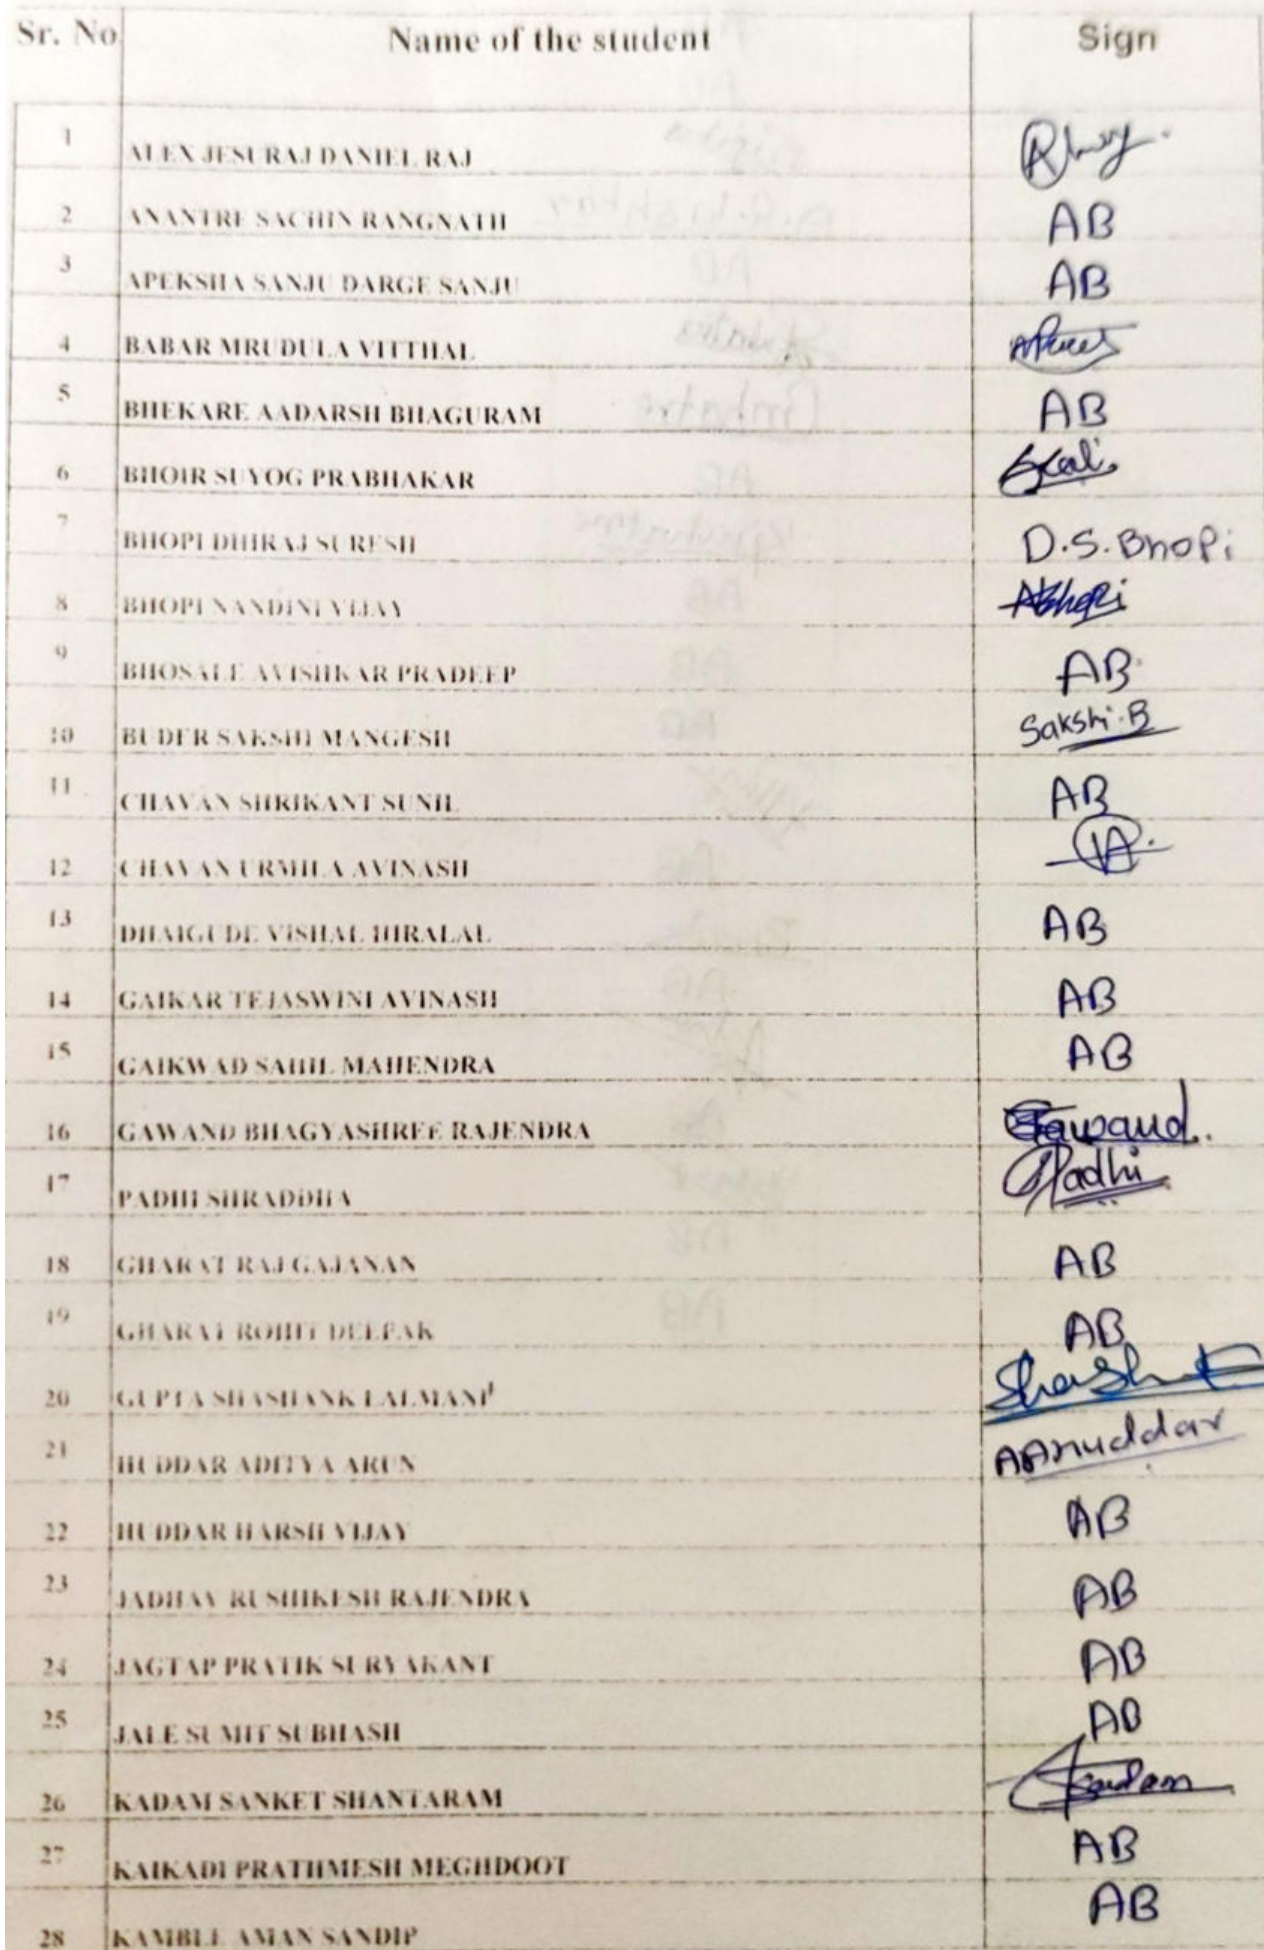 Sr. No Name of the student Sign
1 ALEX JESURAJ DANIEL RAJ
2 ANANTRE SACHIN RANGNATH AB
3 APEKSHA SANJU DARGE SANJU AB
4 BABAR MRUDULA VITTHAL
5 BHEKARE AADARSH BHAGURAM AB
6 BHOIR SUYOG PRABHAKAR
7 BHOPI DHIRAJ SURESH D.S.Bhopi
8 BHOPI NANDINI VIJAY
9 BHOSALE AVISHKAR PRADEEP AB
10 BUDER SAKSHI MANGESH Sakshi.B
11 CHAVAN SHRIKANT SUNIL AB
12 CHAVAN URMILA AVINASH
13 DHAIGUDE VISHAL HIRALAL AB
14 GAIKAR TEJASWINI AVINASH AB
15 GAIKWAD SAHIL MAHENDRA AB
16 GAWAND BHAGYASHREE RAJENDRA Gawand.
17 PADHI SHRADDHA Padhi
18 GHARAT RAJ GAJANAN AB
19 GHARAT ROHIT DEEPAK AB
20 GUPTA SHASHANK LALMANI
21 HUDDAR ADITYA ARUN AAHuddar
22 HUDDAR HARSH VIJAY AB
23 JADHAV RUSHIKESH RAJENDRA AB
24 JAGTAP PRATIK SURYAKANT AB
25 JALE SUMIT SUBHASH AB
26 KADAM SANKET SHANTARAM
27 KAIKADI PRATHMESH MEGHDOOT AB
28 KAMBLE AMAN SANDIP AB